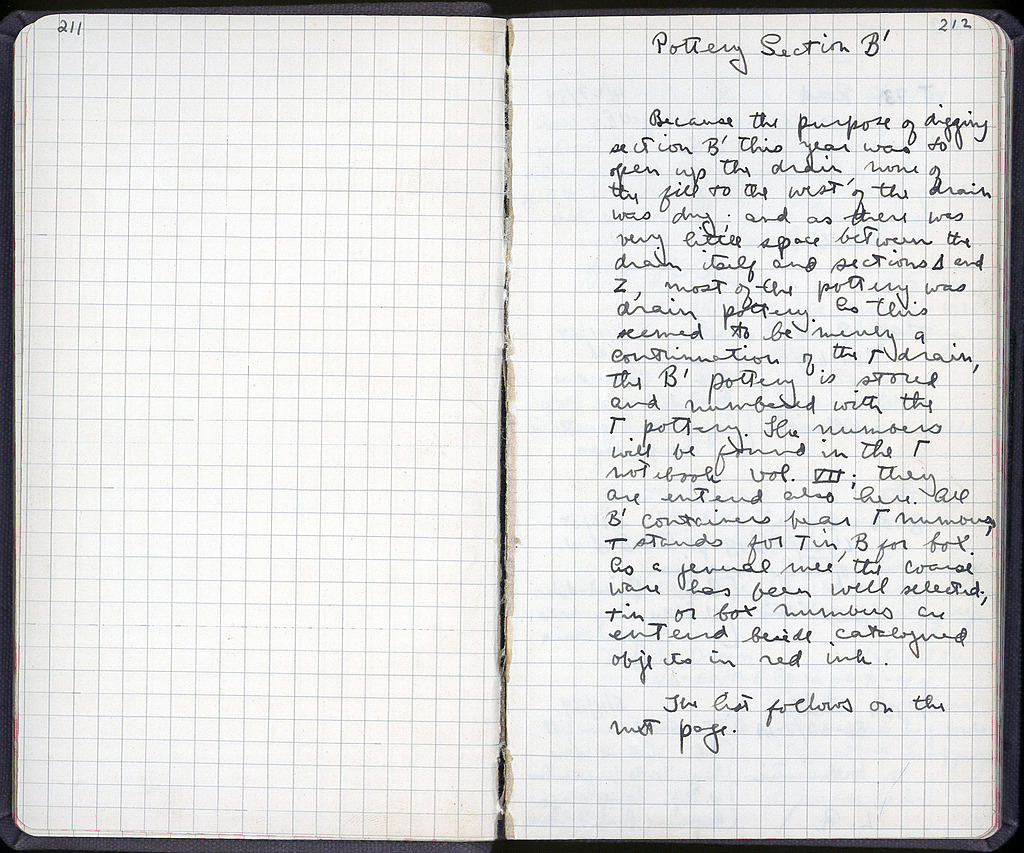 211
212
Pottery Section B'
Because the purpose of digging
section B' this year was to
open up the drain, none of
the fill to the west of the drain
was dug; and as there was
very little space between the
drain itself and sections Δ and
Z, most of the pottery was
drain pottery. As this
seemed to be merely a
continuation of the Γ drain,
the B' pottery is stored
and numbered with the
Γ pottery. The numbers
will be found in the Γ
notebook vol. VII; they
are entered also here. All
B' containers bear Γ numbers,
T stands for Tin, B for box.
As a general rule, the coarse
ware has been well selected;
tin or box numbers are
entered beside catalogued
objects in red ink.
The list follows on the
next page.